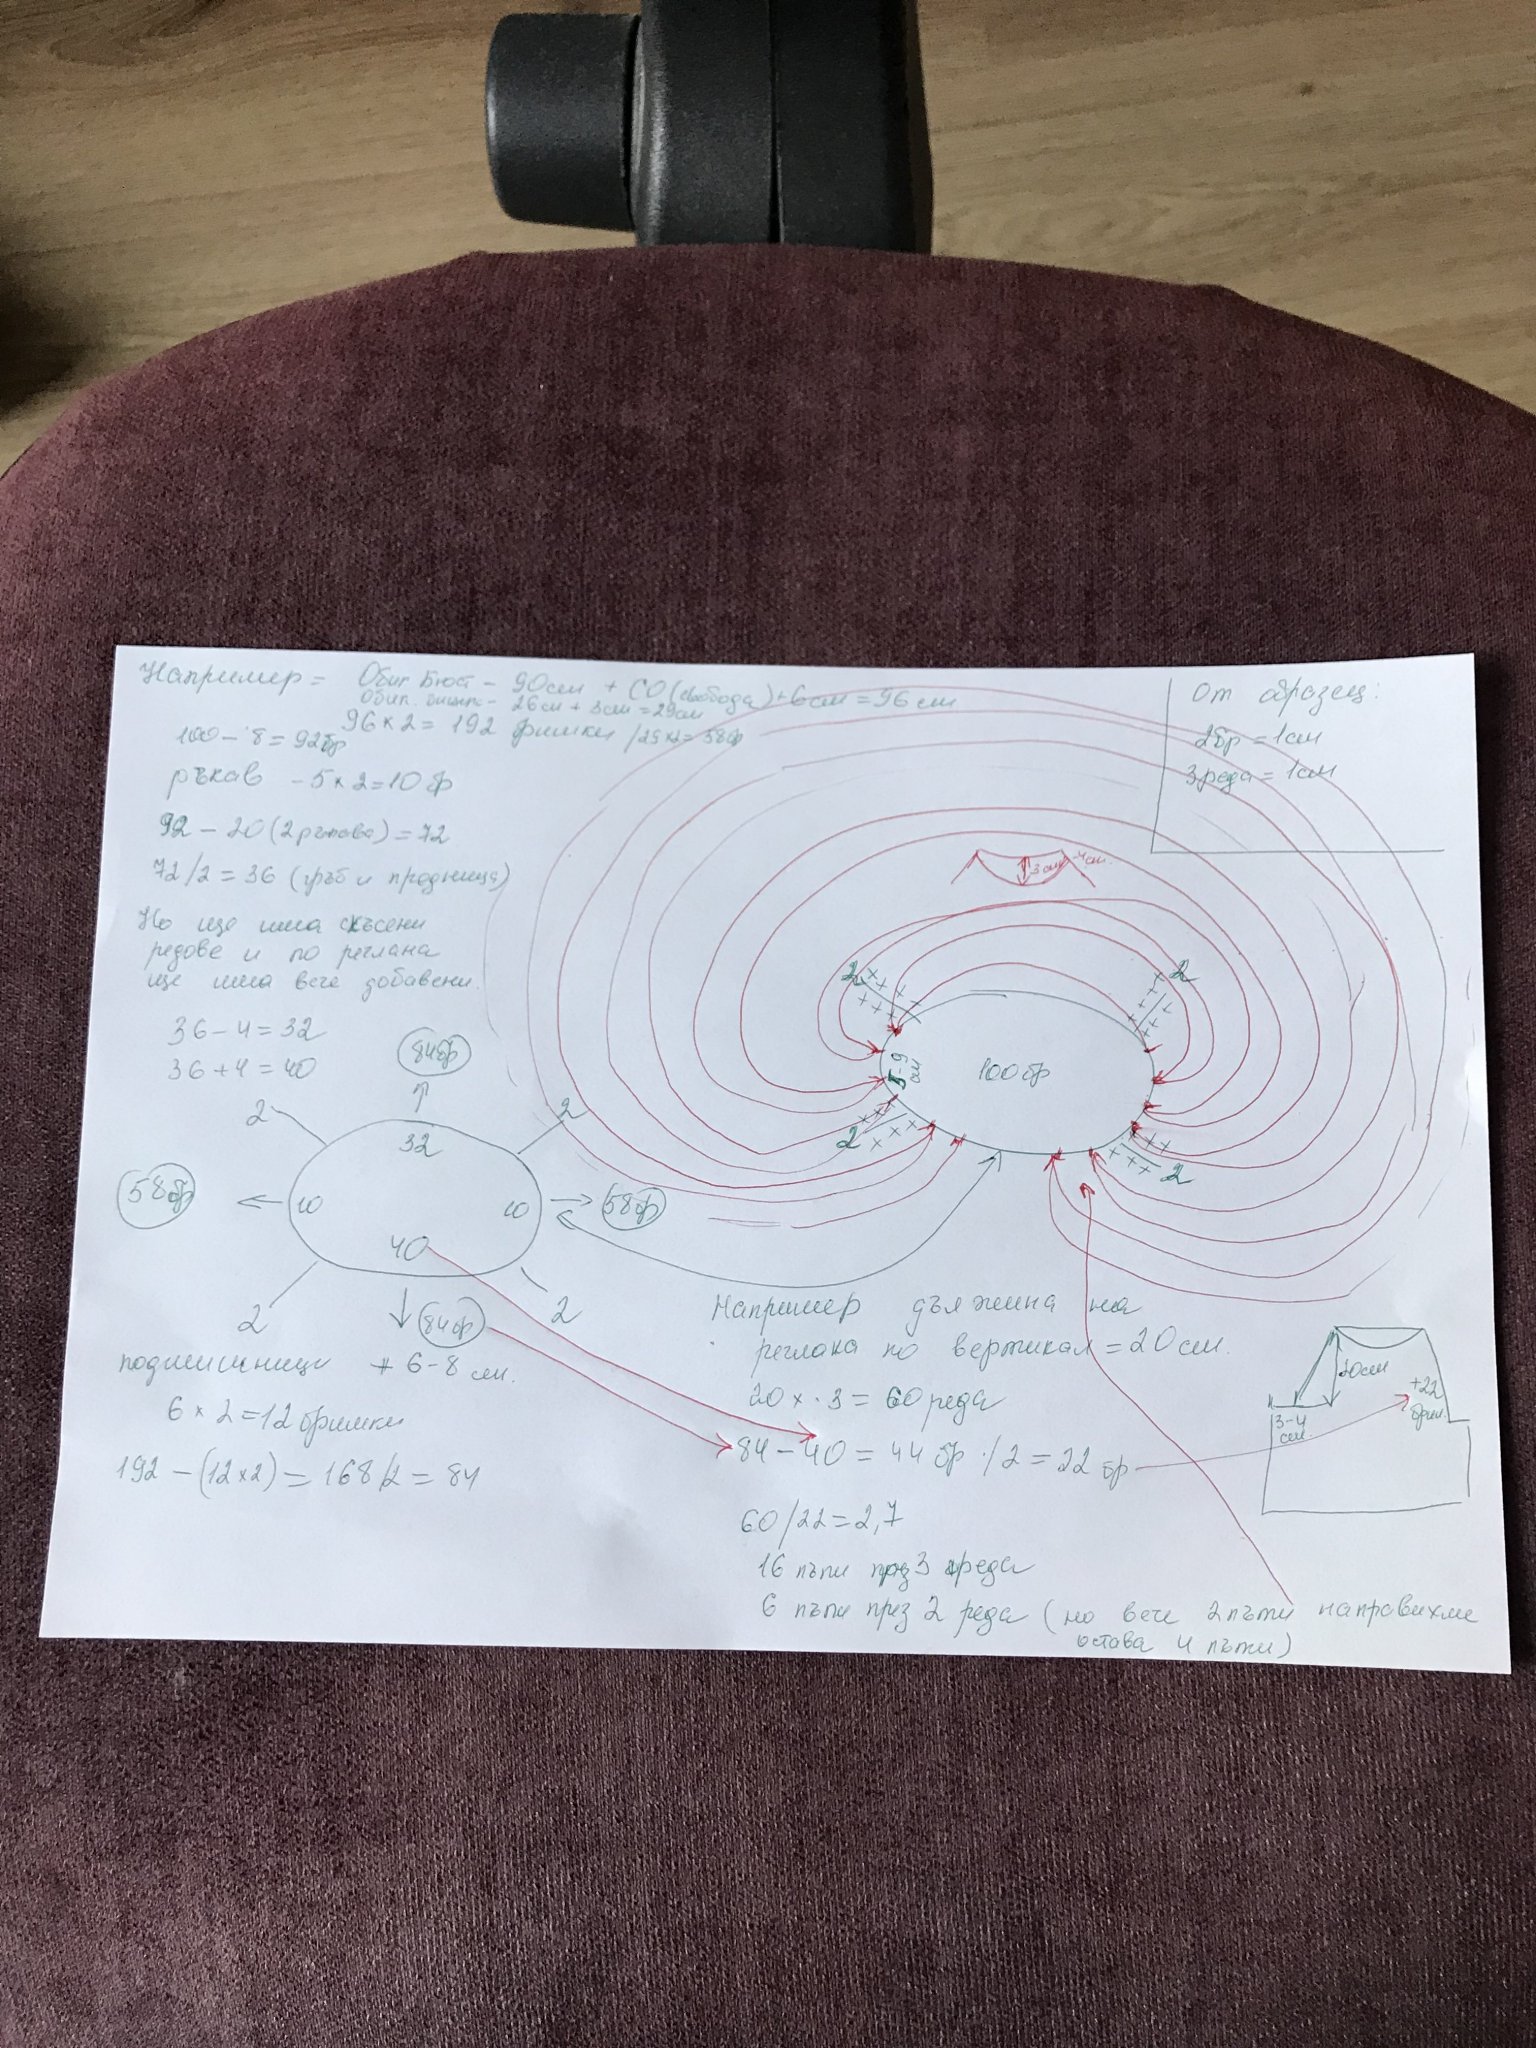 Например = Обик. Бюст - 90см + СО (свобода) + 6см = 96 см
Обик. - 26см + 3см = 29см
96 × 2 = 192 бримки / 29×2 = 58бр
100 - 8 = 92бр
ръкав - 5 × 2 = 10 бр
92 - 20 (2 ръкава) = 72
72 / 2 = 36 (гръб и предница)
Но ще има скъсени
редове и по реглана
ще има вече добавени.
36 - 4 = 32
36 + 4 = 40
84бр
2
2
32
58бр
10
10
58бр
40
2
84бр
2
подмишници + 6-8 см.
6 × 2 = 12 бримки
192 - (12×2) = 168/2 = 84
От образец:
2бр = 1см
3 реда = 1см
3 см - 4 см.
2
2
см
100бр
2
2
Например дължина на
реглана по вертикал = 20 см.
20 × 3 = 60 реда
84 - 40 = 44 бр / 2 = 22 бр
60 / 22 = 2,7
16 пъти през 3 реда
6 пъти през 2 реда (но вече 2 пъти направихме
остава 4 пъти)
20см
+22
брим.
3-4
см.